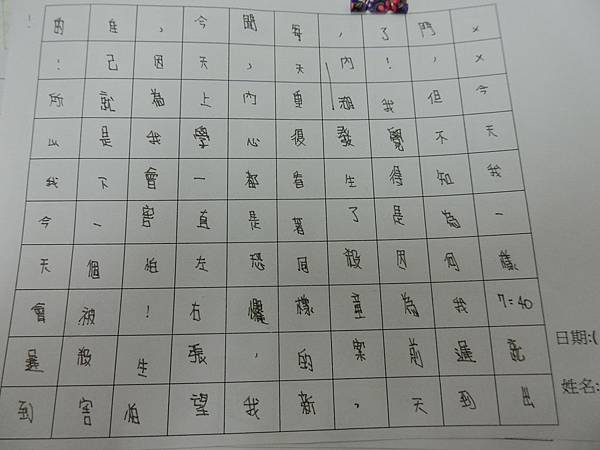 ××今天我一樣7:40就出
門，但不知為何我遲到
了！我覺得是因為前天
，內湖發生了殺童案，
每天重復看著同樣的新
聞，內心都是恐懼，我
今天上學一直左右張望
，因為我會害怕！生怕
自己就是下一個被殺害
的！所以我今天會遲到
！
日期:(
姓名: